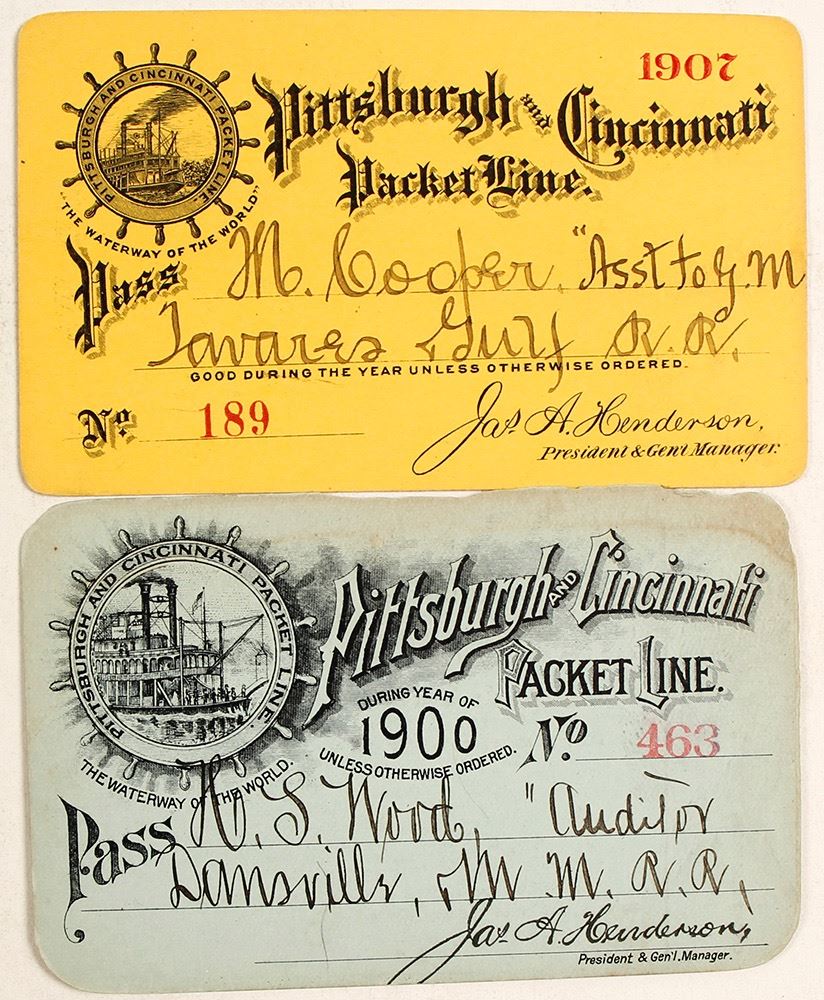 1907
PITTSBURGH AND CINCINNATI PACKET LINE.
"THE WATERWAY OF THE WORLD"
Pittsburgh and Cincinnati
Packet Line.
Pass M. Cooper, "Asst to G. M
Tavares & Gulf R. R.
GOOD DURING THE YEAR UNLESS OTHERWISE ORDERED.
No 189
Jas A. Henderson,
President & Gen'l Manager.
PITTSBURGH AND CINCINNATI PACKET LINE.
THE WATERWAY OF THE WORLD.
Pittsburgh AND Cincinnati
PACKET LINE.
DURING YEAR OF
1900
UNLESS OTHERWISE ORDERED.
No 463
Pass H. S. Wood, "Auditor
Dansville, & M M. R. R.
Jas A. Henderson,
President & Gen'l. Manager.